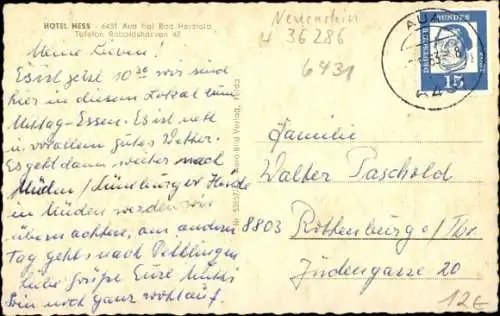 HOTEL HESS - 6431 Aua bei Bad Hersfeld
Telefon Raboldshausen 42
Neuenstein
H 36286
6431
AUA
DEUTSCHE BUNDESPOST
15
Meine Lieben!
Es ist jetzt 10³⁰ wir sind
hier in diesem Lokal zum
Mittag-Essen. Es ist nett
u. vor allem gutes Wetter.
Es geht dann weiter nach
Müden / Lüneburger Heide
in Müden werden wir
übernachten, am andern
Tag gehts nach
liebe Grüße Eure
Bin noch ganz wohlauf.
Familie
Walter Paschold
8803 Rothenburg o/Tbr
Judengasse 20
12€